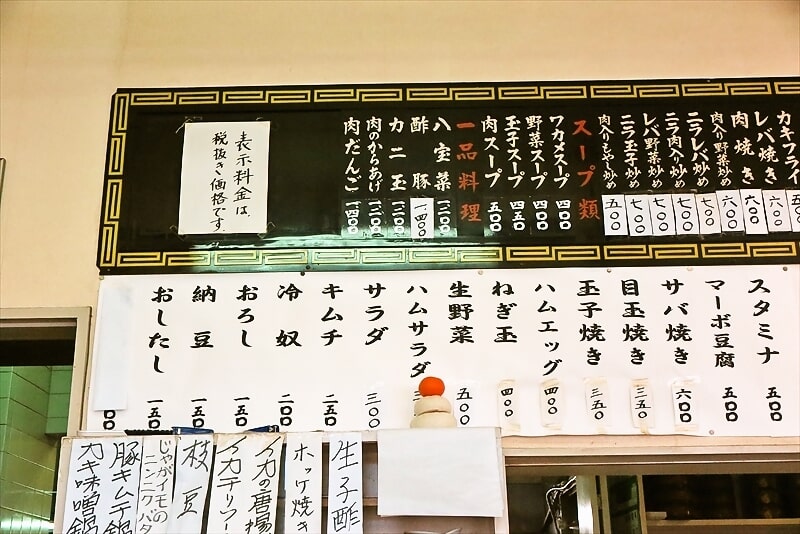 カキフライ
レバ焼き 六〇〇
肉焼き 六〇〇
肉入り野菜炒め 七〇〇
ニラレバ炒め 七〇〇
ニラ肉入り炒め 七〇〇
レバ野菜炒め 七〇〇
ニラ玉子炒め 七〇〇
肉入りもやし炒め 五〇
スープ類
ワカメスープ 四〇〇
野菜スープ 四〇〇
玉子スープ 四五〇
肉スープ 五〇〇
一品料理
八宝菜 一二〇〇
酢豚 一、四〇〇
カニ玉 一二〇〇
肉のからあげ 一二〇〇
肉だんご 一四〇〇
表示料金は、
税抜き価格です。
スタミナ 五〇〇
マーボ豆腐 五〇〇
サバ焼き 六〇〇
目玉焼き 三五〇
玉子焼き 三五〇
ハムエッグ 四〇〇
ねぎ玉 四〇〇
生野菜 五〇〇
ハムサラダ
サラダ 三〇〇
キムチ 二五〇
冷奴 二〇〇
おろし 一五〇
納豆 一五〇
おしたし 一五〇
生子酢
ホッケ焼き
イカの唐揚
イカテリヤー
枝豆
じゃがイモの
ニンニクバタ
豚キムチ鍋
カキ味噌鍋